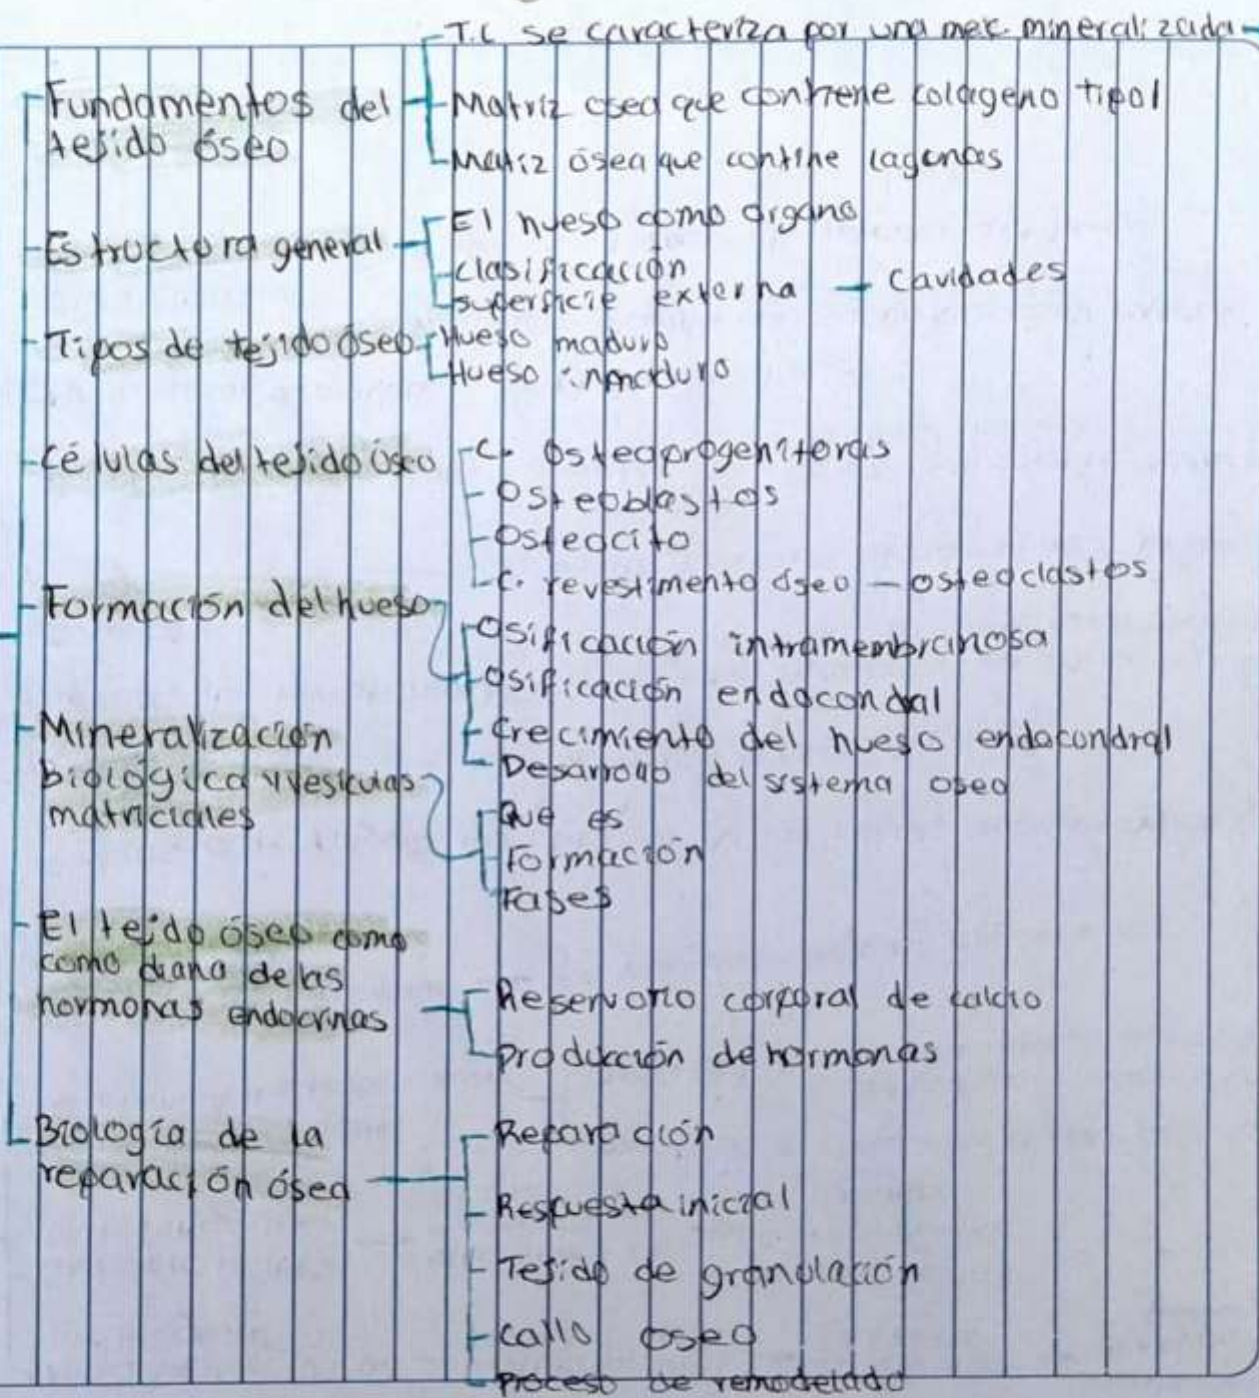 T.C se caracteriza por una mex. mineralizada
Fundamentos del
tejido óseo
Matriz osea que contiene colageno tipo I
Matiz ósea que contine lagunas
Estructura general
El hueso como organo
clasificación
superficie externa — Cavidades
Tipos de tejido óseo
Hueso maduro
Hueso inmaduro
Células del tejido óseo
C. Osteoprogenitoras
Osteoblastos
Osteocito
C. revestimento óseo — osteoclastos
Formación del hueso
Osificación intramembranosa
Osificación endocondral
Crecimiento del hueso endocondral
Desarrollo del sistema oseo
Mineralización
biológica y vesículas
matriciales
Que es
Formación
Fases
El tejido óseo como
como diana de las
hormonas endocrinas
Reservorio corporal de calcio
producción de hormonas
Biología de la
reparación ósea
Reparación
Respuesta inicial
Tejido de granulación
callo oseo
proceso de remodelado